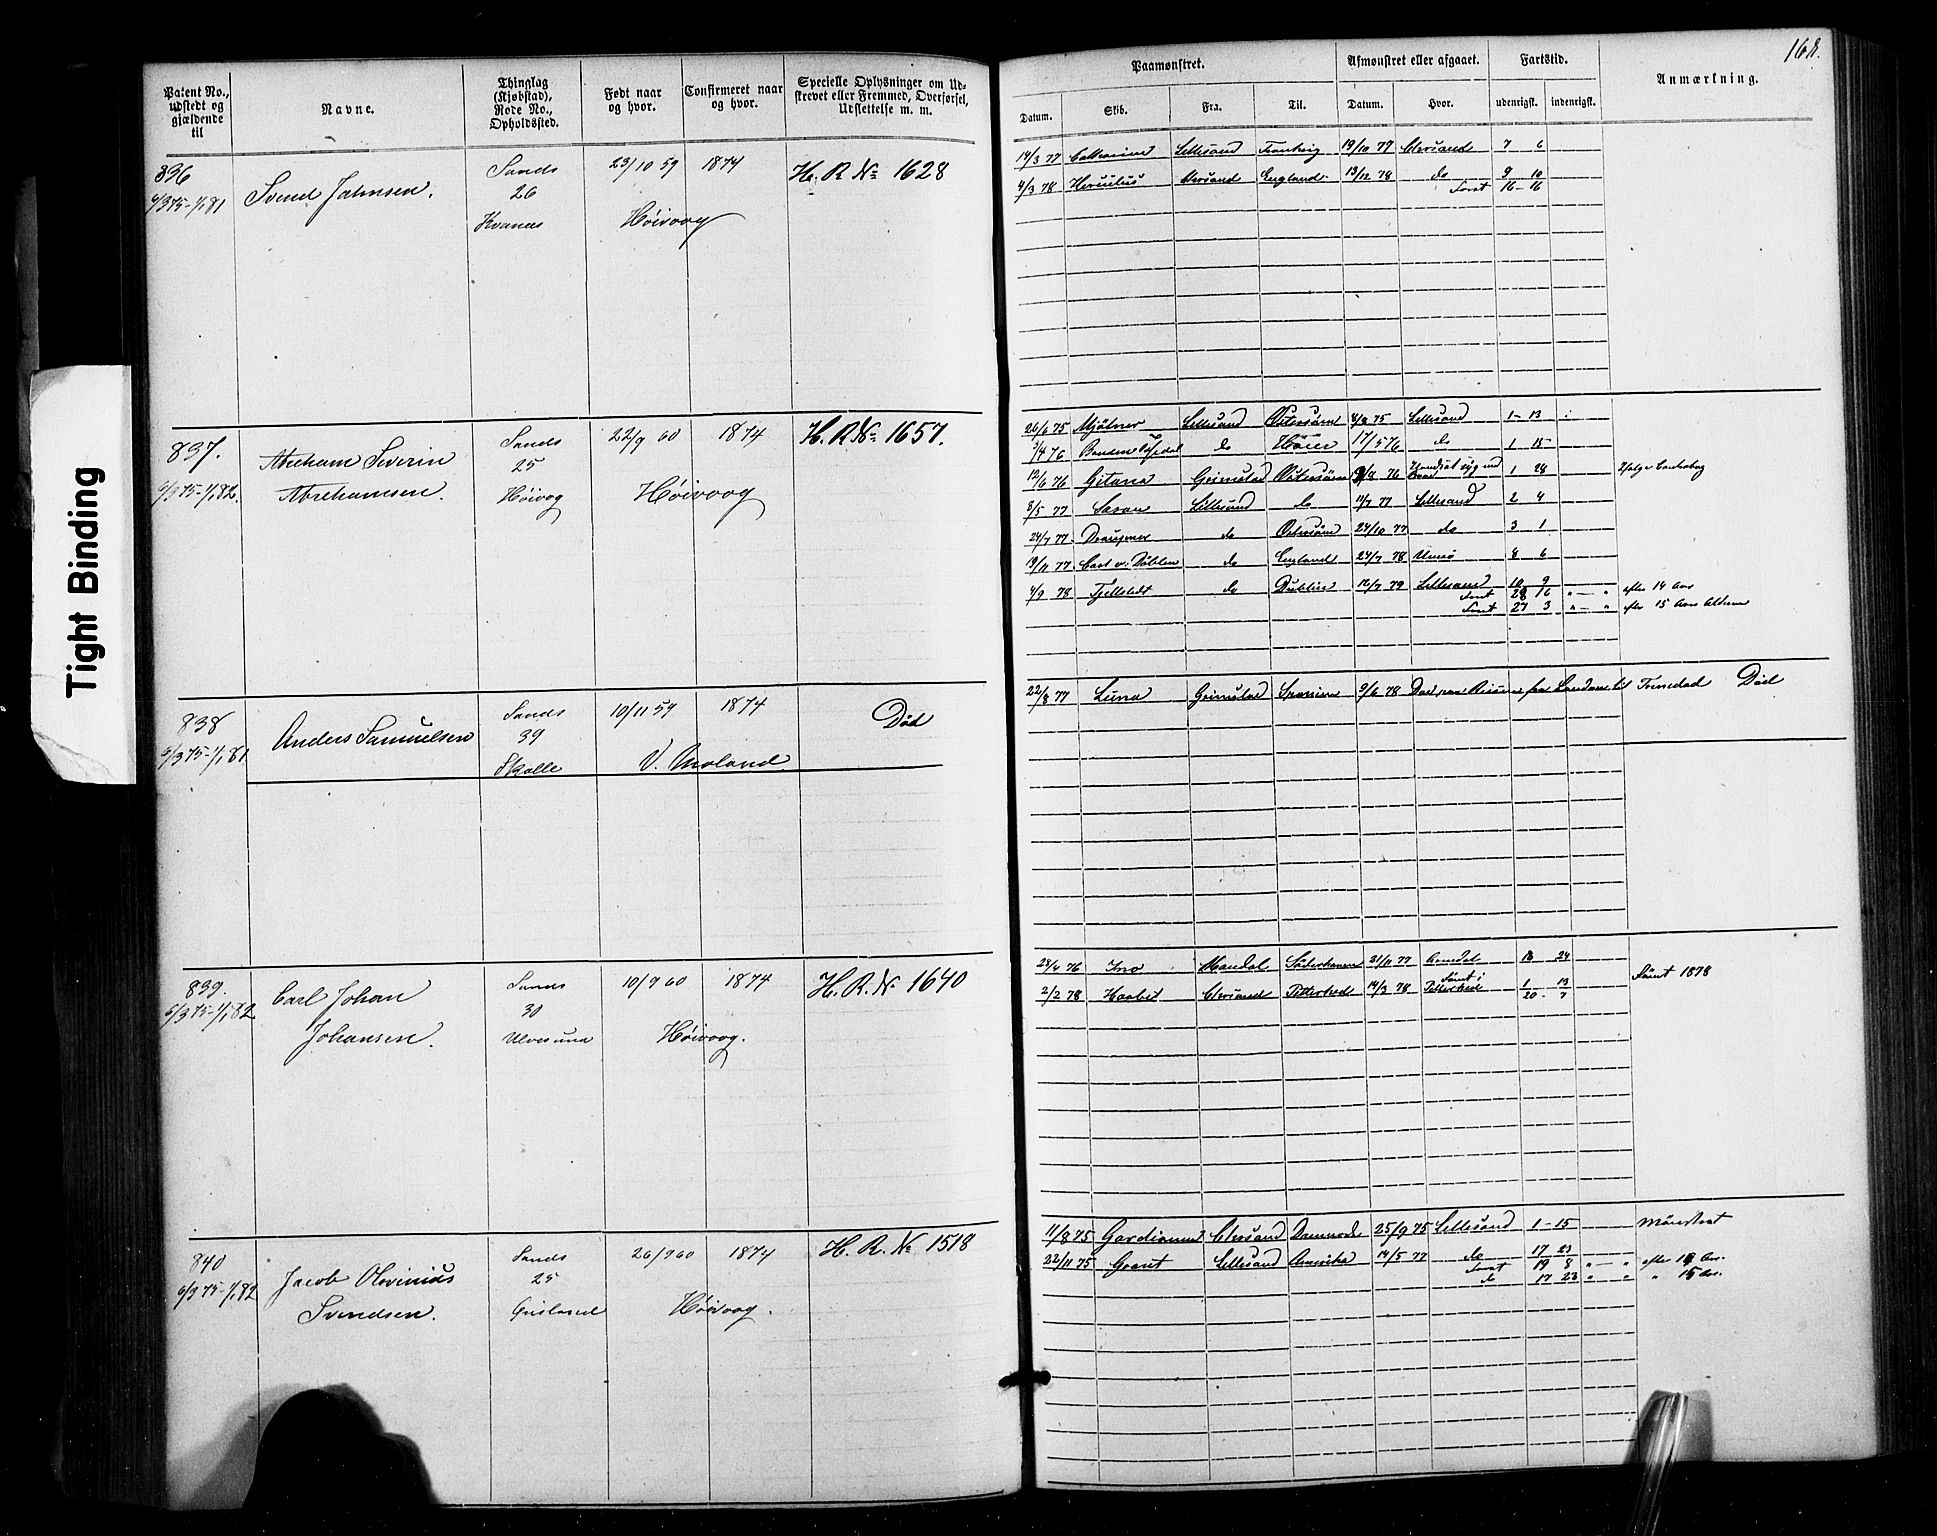 168.
Tight Binding
Patent No., udstedt og gjældende til
Navne.
Thinglag (Kjøbstad), Rode No., Opholdssted.
Født naar og hvor.
Confirmeret naar og hvor.
Specielle Oplysninger om Udskrevet eller Fremmed, Overførsel, Udslettelse m. m.
Paamønstret.
Afmønstret eller afgaaet.
Fartstid.
Anmærkning.
Datum.
Skib.
Fra.
Til.
Datum.
Hvor.
udenrigsk.
indenrigsk.
836
6/3 75-1/1 81
Svend Jahnsen.
Sands
26
Kvanes
23/10 59
1874
Høivaag
H. R. No 1628
14/3 77 Lillesand 19/10 77 Chrsand 7 6
4/3 78 Chrsand England 13/12 78 do 9 10
16-16
837.
6/3 75-1/1 82.
Abraham Severin
Abrahamsen.
Sands
25
Høivog
22/9 60
1874
Høivoog
H. R. No 1657.
26/6 75 Mjølner Lillesand Østersøen 75 Lillesand 1-13
76 do 17/5 76 do 1 15
12/6 76 Gitana Grimstad Østersøen 76 1 28
8/5 77 Lillesand do 11/7 77 Lillesand 2 4
24/7 77 Draupner do Østersøen 24/10 77 do 3 1
19/11 77 do England 24/7 78 8 6
4/9 78 do Dublin 12/7 79 Lillesand 10 9
28 16 efter 14 Aar
27 3 efter 15 Aars Alderen
838
6/3 75-1/1 81
Anders Samuelsen
Sands
39
Skalle
10/11 59
1874
V. Moland
Død
22/8 77 Luna Grimstad Spanien 9/6 78 Død paa Reisen fra til Død
839.
6/3 75-1/1 82
Carl Johan
Johansen.
Sands
30
Ulvesund
10/9 60
1874
Høivoog.
H. R. No 1640
28/4 76 Ino Mandal 21/11 77 Arendal 18 24
2/2 78 Haabet Chrsand 14/3 78 1 13
20 7
Rømt 1878
840
6/3 75-1/1 82
Jacob Olvinius
Svendsen.
Sands
25
26/9 60
1874
Høivoog.
H. R. No 1518
11/8 75 Chrsand 25/9 75 Lillesand 1-15 Mønstret
22/11 75 Grant Lillesand Amerika 14/5 77 do 17 23
19 8 efter
do 17 23 " 15 Aar.